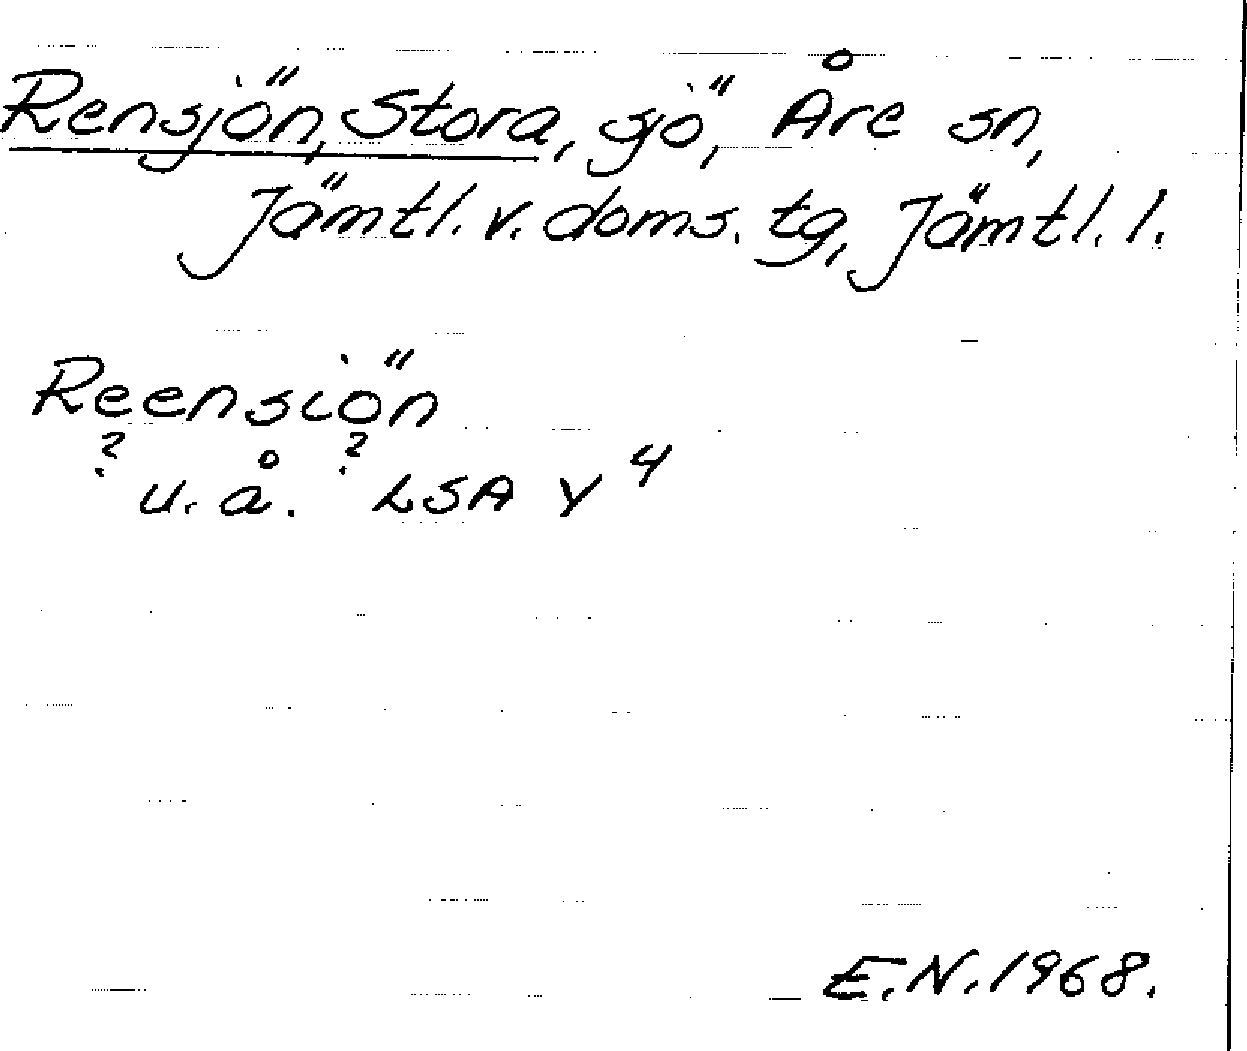 Rensjön, Stora, sjö, Åre sn,
Jämtl. v. doms. tg, Jämtl. l.
Reensiön
? u. å. ? LSA Y 4
E.N. 1968.